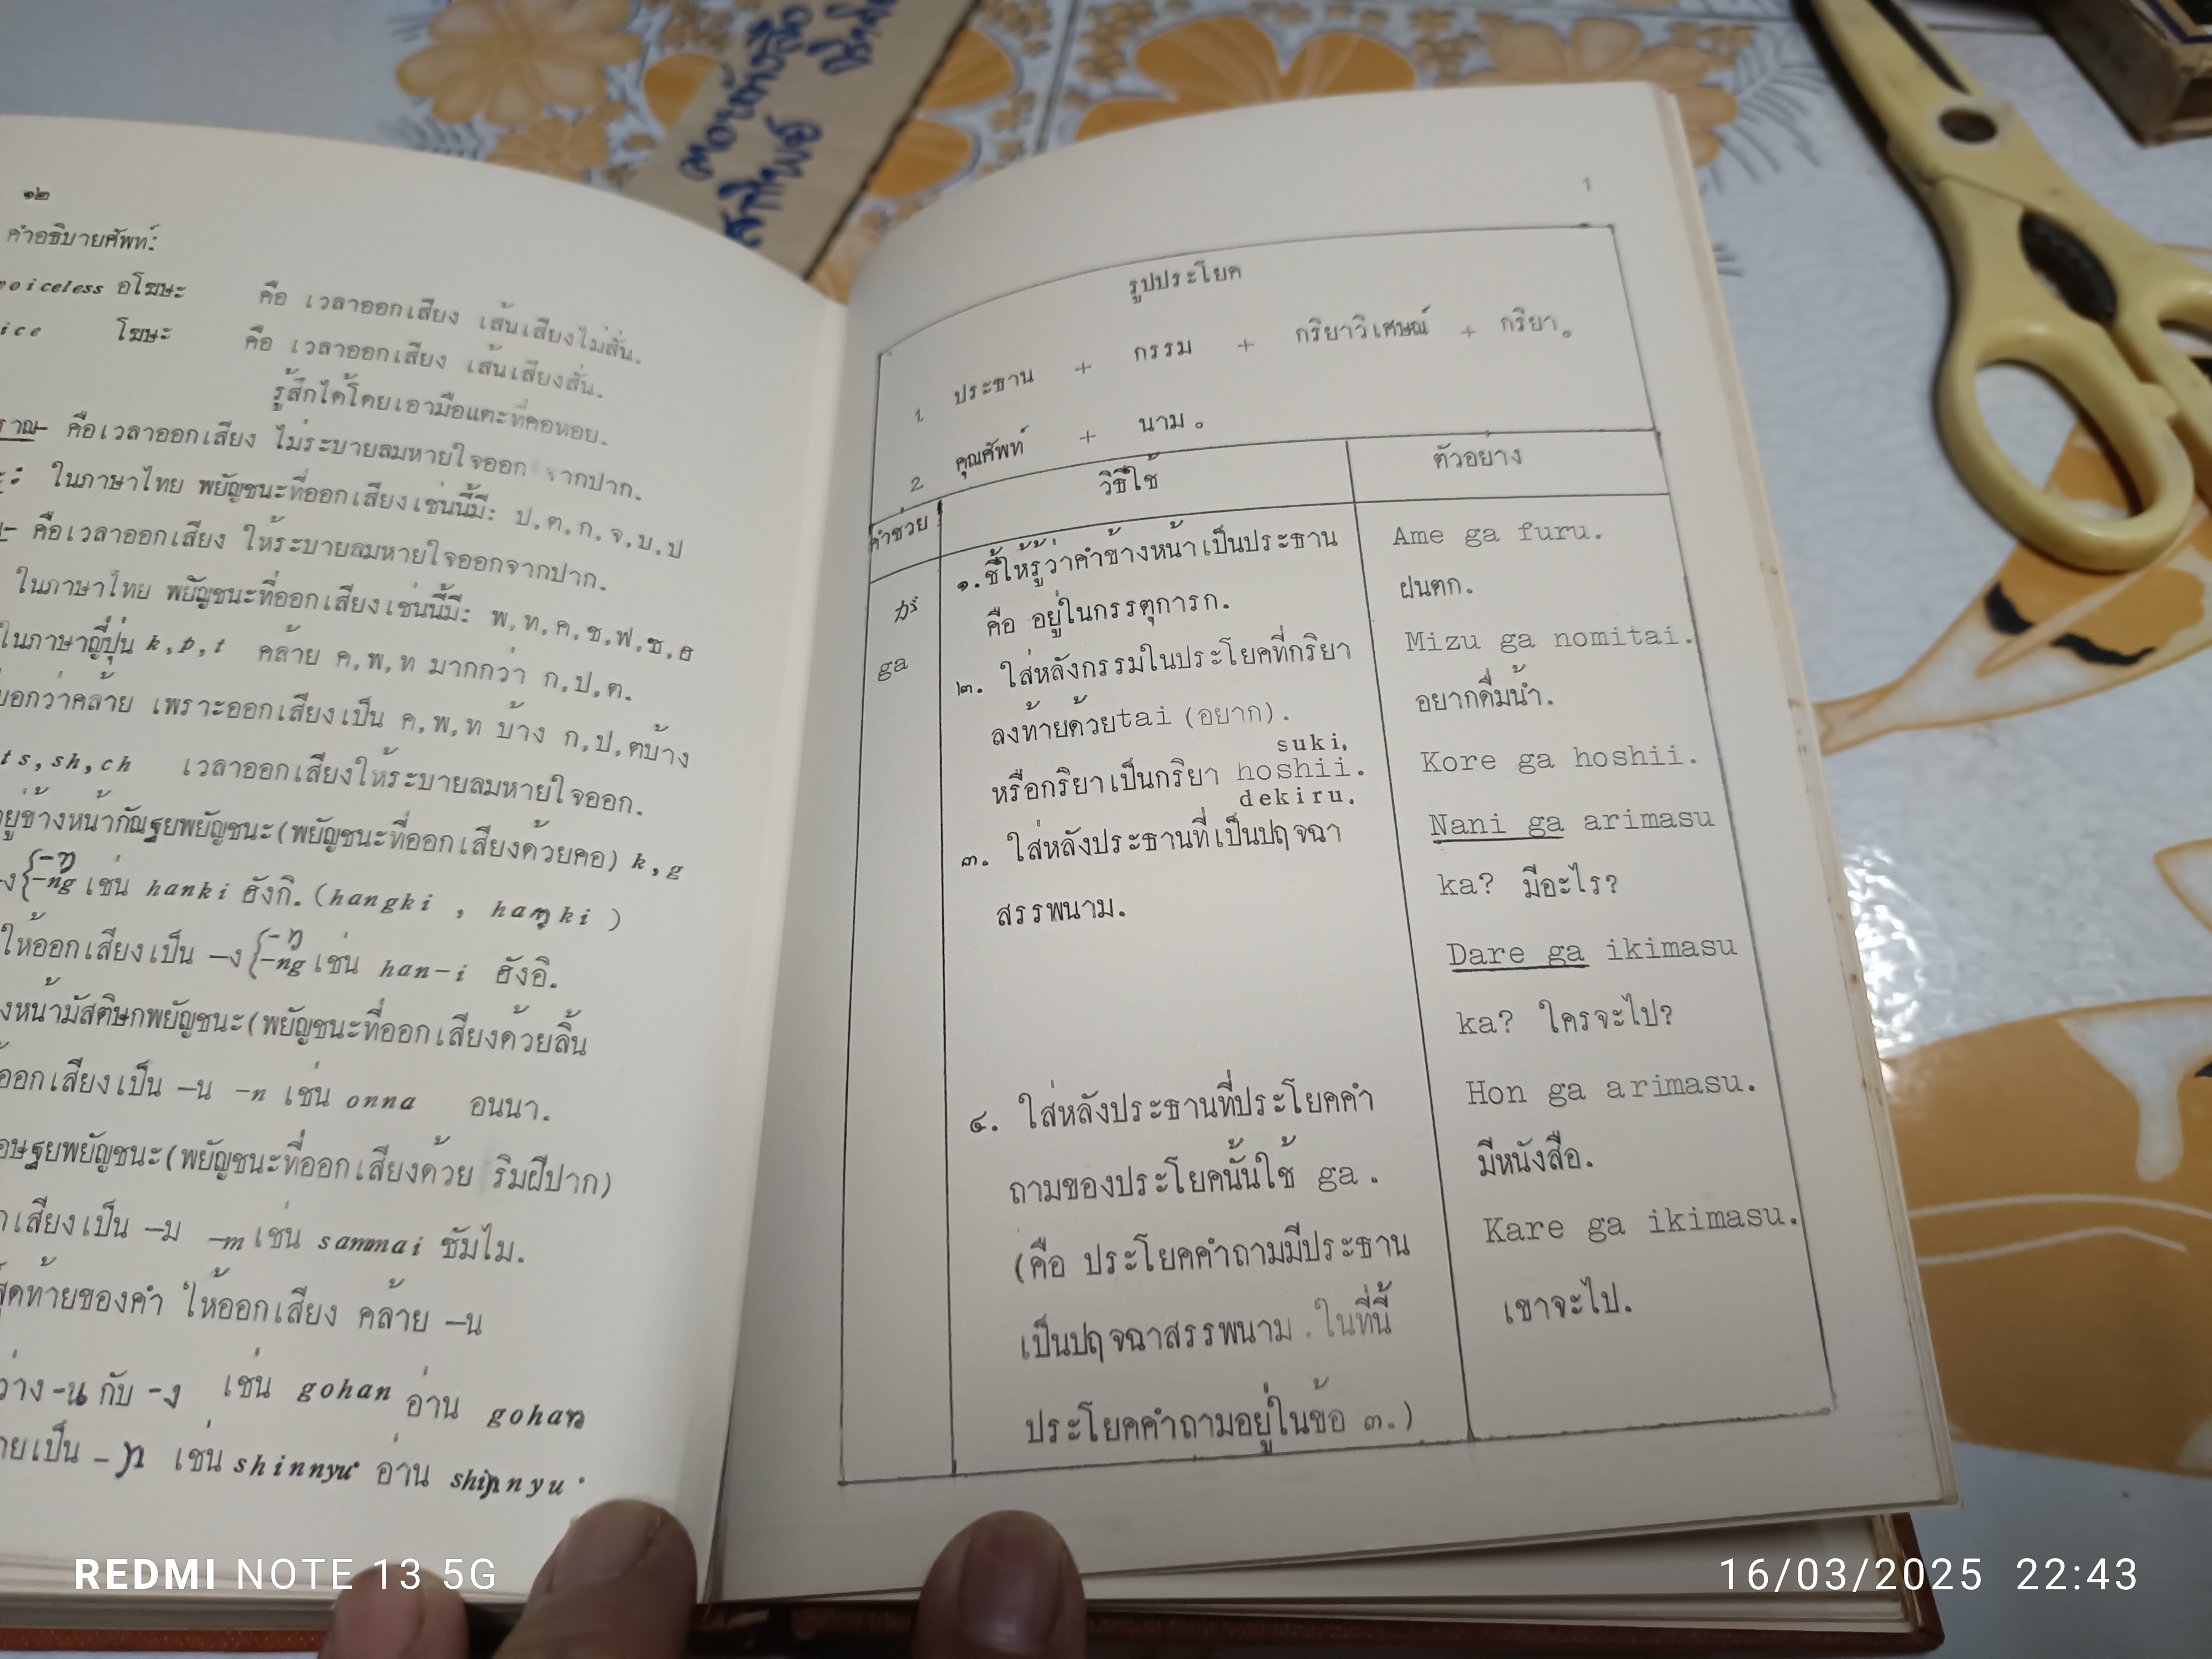 ๑๒
คำอธิบายศัพท์:
voiceless อโฆษะ คือ เวลาออกเสียง เส้นเสียงไม่สั่น.
ice โฆษะ คือ เวลาออกเสียง เส้นเสียงสั่น.
รู้สึกได้โดยเอามือแตะที่คอหอย.
ราณ- คือเวลาออกเสียง ไม่ระบายลมหายใจออก จากปาก.
: ในภาษาไทย พยัญชนะที่ออกเสียงเช่นนี้มี: ป,ต,ก,จ,บ,ป
- คือเวลาออกเสียง ให้ระบายลมหายใจออกจากปาก.
ในภาษาไทย พยัญชนะที่ออกเสียงเช่นนี้มี: พ,ท,ค,ช,ฟ,ซ,ฮ
ในภาษาญี่ปุ่น k,p,t คล้าย ค,พ,ท มากกว่า ก,ป,ต.
บอกว่าคล้าย เพราะออกเสียงเป็น ค,พ,ท บ้าง ก,ป,ตบ้าง
ts,sh,ch เวลาออกเสียงให้ระบายลมหายใจออก.
อยู่ข้างหน้ากัณฐยพยัญชนะ(พยัญชนะที่ออกเสียงด้วยคอ) k,g
-ง{-ŋ -ng เช่น hanki ฮังกิ. (hangki , haŋki )
ให้ออกเสียงเป็น -ง{-ŋ -ng เช่น han-i ฮังอิ.
งหน้ามัสติษกพยัญชนะ(พยัญชนะที่ออกเสียงด้วยลิ้น
ออกเสียงเป็น -น -n เช่น onna อนนา.
อษฐยพยัญชนะ(พยัญชนะที่ออกเสียงด้วย ริมฝีปาก)
กเสียงเป็น -ม -m เช่น sammai ซัมไม.
สุดท้ายของคำ ให้ออกเสียง คล้าย -น
ว่าง -น กับ -ง เช่น gohan อ่าน gohan
ายเป็น -ɲ เช่น shinnyu อ่าน shiɲnyu
1
รูปประโยค
1 ประธาน + กรรม + กริยาวิเศษณ์ + กริยา。
2 คุณศัพท์ + นาม。
คำช่วย วิธีใช้ ตัวอย่าง
ga
๑. ชี้ให้รู้ว่าคำข้างหน้าเป็นประธาน
คือ อยู่ในกรรตุการก.
๒. ใส่หลังกรรมในประโยคที่กริยา
ลงท้ายด้วยtai (อยาก).
suki,
หรือกริยาเป็นกริยา hoshii.
dekiru.
๓. ใส่หลังประธานที่เป็นปฤจฉา
สรรพนาม.
๔. ใส่หลังประธานที่ประโยคคำ
ถามของประโยคนั้นใช้ ga.
(คือ ประโยคคำถามมีประธาน
เป็นปฤจฉาสรรพนาม . ในที่นี้
ประโยคคำถามอยู่ในข้อ ๓.)
Ame ga furu.
ฝนตก.
Mizu ga nomitai.
อยากดื่มน้ำ.
Kore ga hoshii.
Nani ga arimasu
ka? มีอะไร?
Dare ga ikimasu
ka? ใครจะไป?
Hon ga arimasu.
มีหนังสือ.
Kare ga ikimasu.
เขาจะไป.
REDMI NOTE 13 5G
16/03/2025 22:43